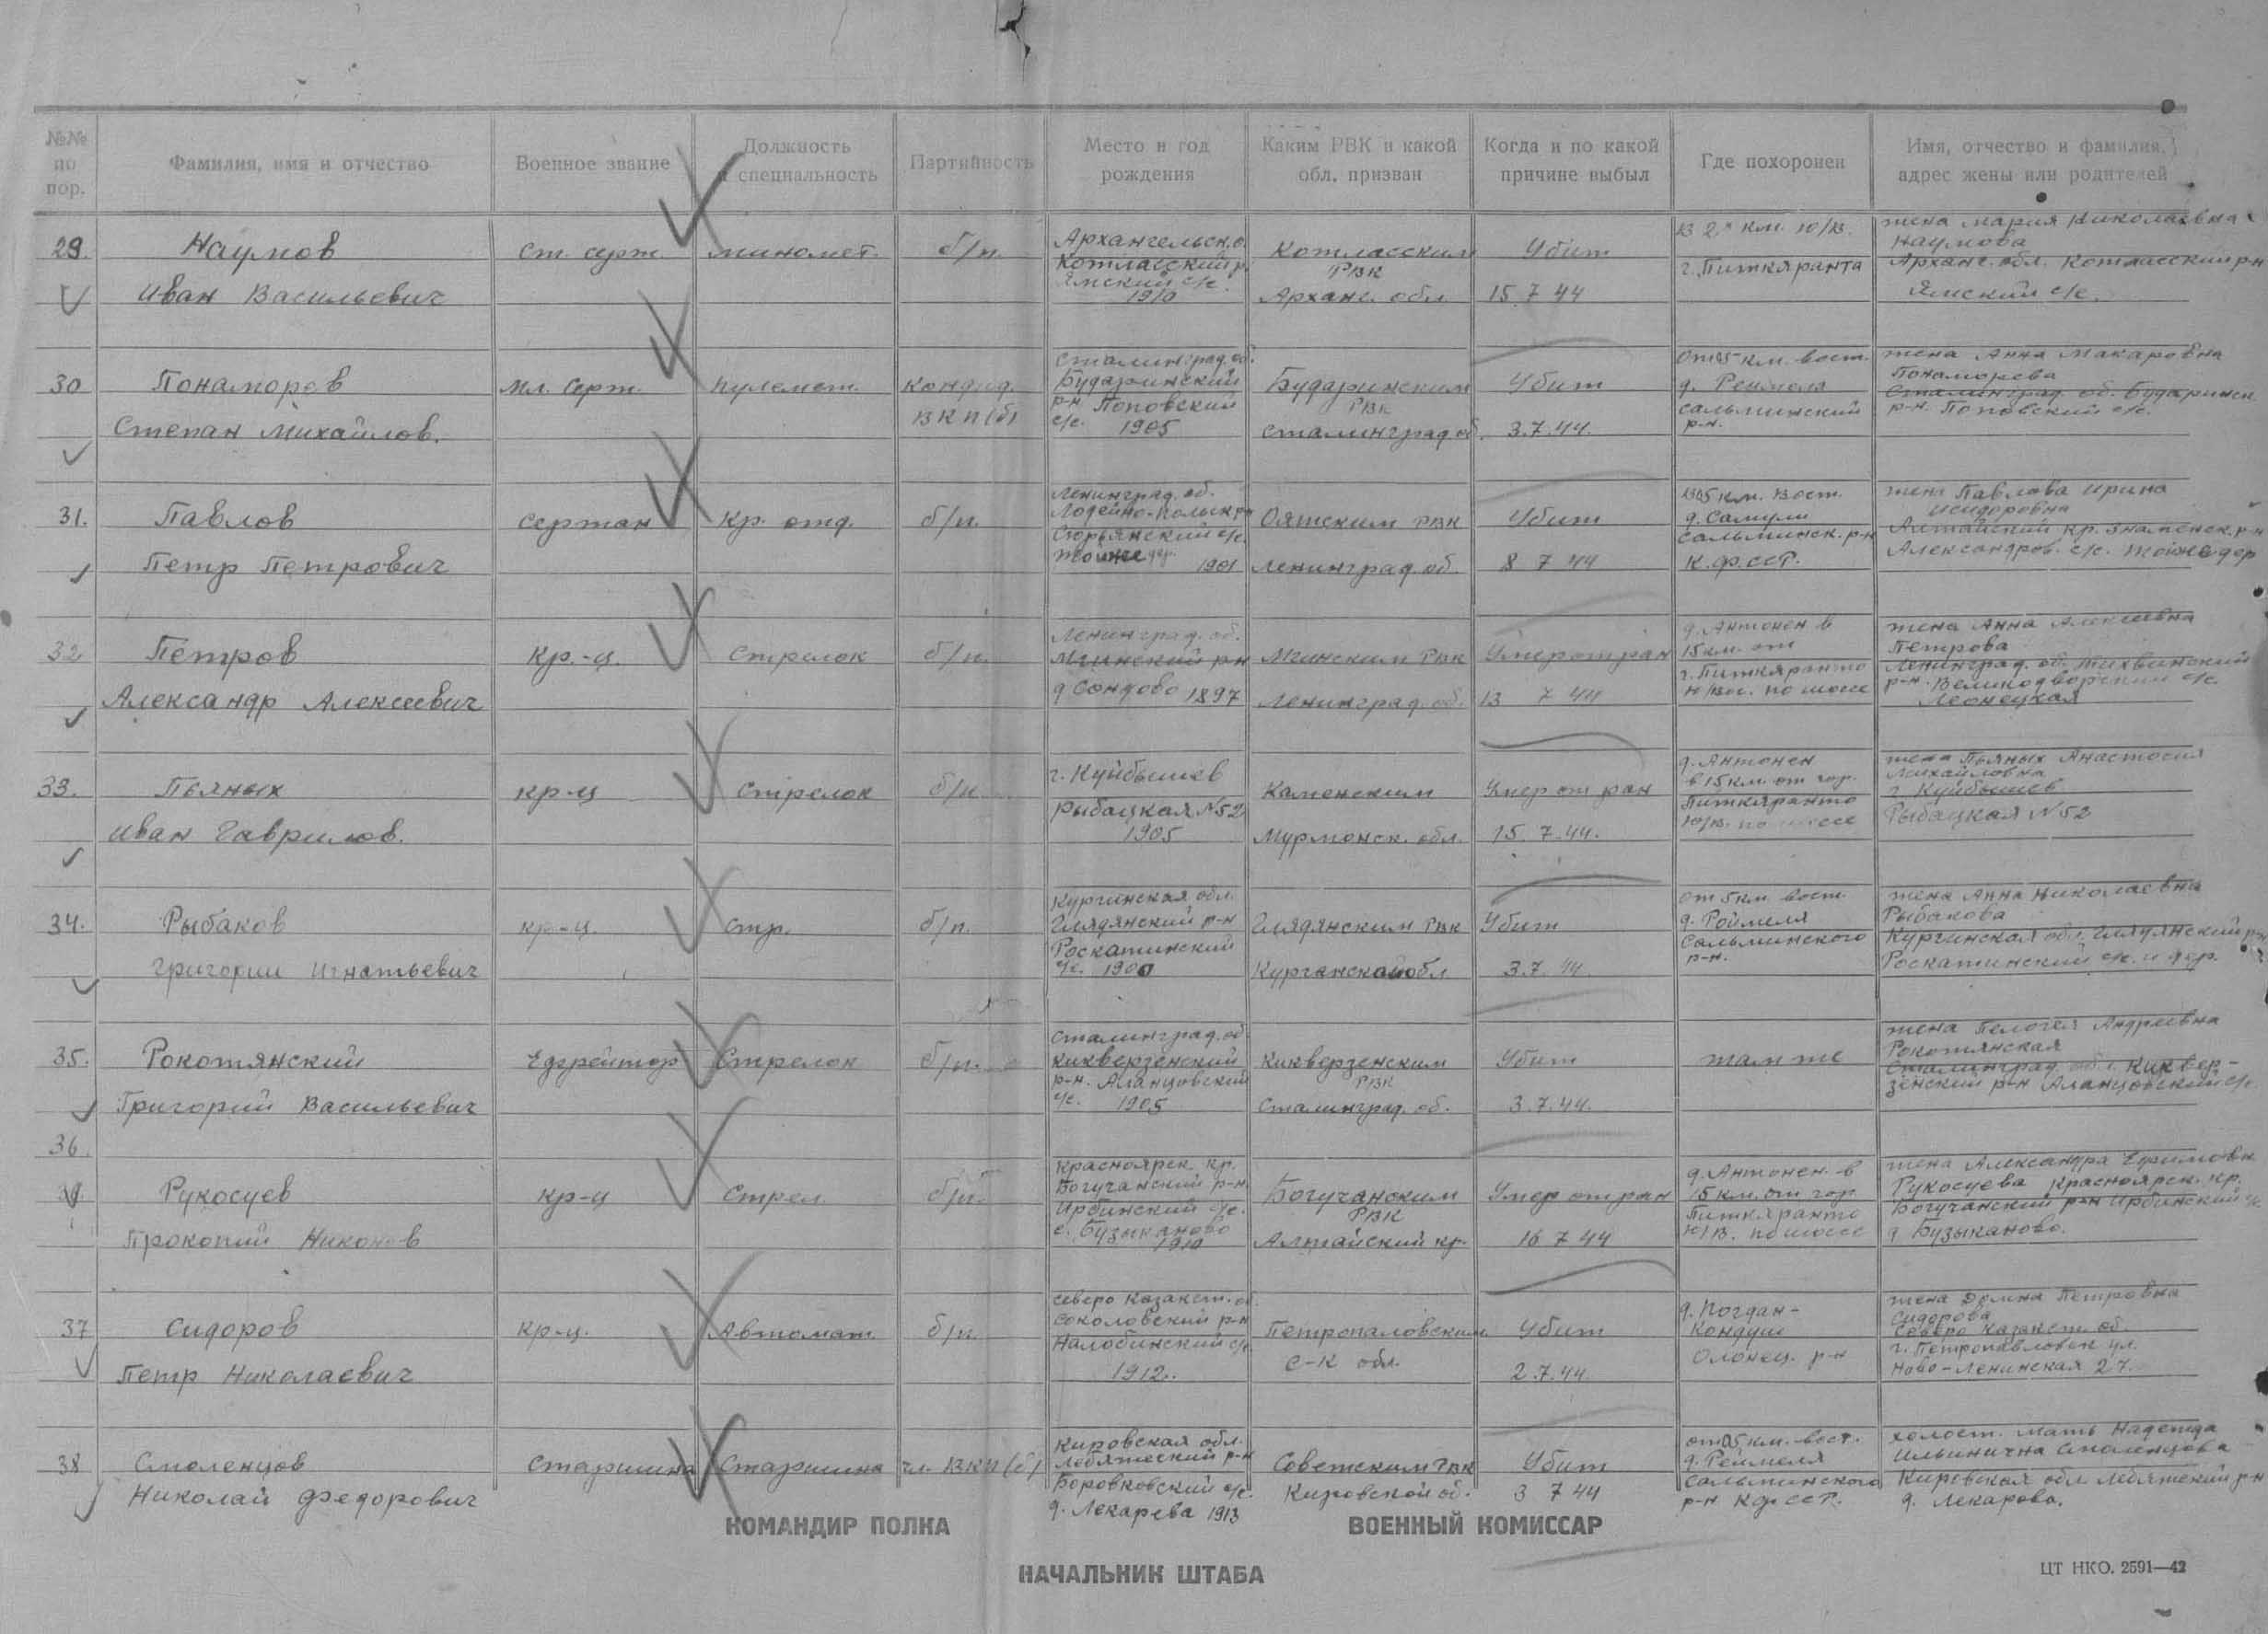 №№ по пор.
Фамилия, имя и отчество
Военное звание
Должность и специальность
Партийность
Место и год рождения
Каким РВК и какой обл. призван
Когда и по какой причине выбыл
Где похоронен
Имя, отчество и фамилия, адрес жены или родителей
29. Наумов Иван Васильевич
ст. серж.
миномет.
б/п.
Архангельск. о. Котласский р. Ямский с/с. 1910
Котласским РВК Арханг. обл.
Убит 15.7.44
в 2х км. ю/в. г. Питкяранта
жена Мария Николаевна Наумова Арханг. обл. Котласский р-н Ямский с/с.
30 Понаморев Степан Михайлов.
мл. серж.
пулемет.
кондид. ВКП(б)
Сталинград. об. Бударинский р-н. Поповский с/с. 1905
Бударинским РВК Сталинград об.
Убит 3.7.44.
км. вост. д. Сальминский р-н.
жена Анна Макаровна Понаморева Сталинград. об. Бударинск р-н. Поповский с/с.
31. Павлов Петр Петрович
сержан
Кр. отд.
б/п.
Ленинград. об. с/с. 1901
Оятским РВК Ленинград. об.
Убит 8 7 44
км. вост. д. Сальминск. р-н К.Ф.ССР.
жена Павлова Ирина Исидоровна Алтайский кр. Знаменск. р-н Александров. с/с.
32 Петров Александр Алексеевич
кр.-ц.
Стрелок
б/п.
Ленинград. об. Мгинский р-н д Сондово 1897
Мгинским РВК Ленинград. об.
Умер от ран 13 7 44
д. Антонен в 15 км. от г. Питкяранто по шоссе
жена Анна Алексеевна Петрова Ленинград. об. Тихвинский р-н. Великодворский с/с.
33. Пьяных Иван Гаврилов.
кр-ц
Стрелок
б/п
г. Куйбышев Рыбацкая №52 1905
Каменским Мурмонск. обл.
Умер от ран 15.7.44.
д. Антонен в 15 км. от гор. Питкяранто ю/в. по шоссе
жена Пьяных Анастосия Михайловна г Куйбышев Рыбацкая №52
34. Рыбаков Григории Игнатьевич
кр-ц.
Стр.
б/п.
Глядянский р-н Роскатинский с/с. 1900
Глядянским РВК Курганской обл
Убит 3.7.44
км вост. д. Сальминского р-н.
жена Анна Николаевна Рыбакова Глядянский р-н Роскатинский с/с. и дер.
35. Рокотянский Григорий Васильевич
Ефрейтор
Стрелок
б/п.
Сталинград. об. Кикверзенский р-н. Аланцовский с/с. 1905
Кикверзенским РВК Сталинград. об.
Убит 3.7.44.
там же
жена Пелогея Андреевна Рокотянская Сталинград. обл. Киквер-зенский р-н Аланцовский с/с
36. Рукосуев Прокопий Никонов
кр-ц
Стрел.
б/п.
Красноярск. кр. Богучанский р-н. Ирбинский с/с. с. Бузыканово 1910
Богучанским РВК Алтайский кр.
Умер от ран 16 7 44
д. Антонен в 15 км. от гор Питкяранто ю/в. по шоссе
жена Александра Ефимовн Рукосуева Красноярск. кр. Богучанский р-н Ирбинский с/с. д Бузыканово.
37 Сидоров Петр Николаевич
кр-ц.
Автомат.
б/п.
Северо Казахст. об. Соколовский р-н Налобинский с/с 1912.
Петропаловским С-К обл.
Убит 2.7.44
д. Погдан-Кондуш Олонец. р-н
жена Петровна Сидорова Северо Казахст. об. г. Петропавловск ул. Ново-Ленинская 27.
38 Смоленцов Николай Федорович
Старшина
Старшина
чл. ВКП(б)
Кировская обл. Лебяжеский р-н Боровковский с/с. д. Лекарева 1913
Советским РВК Кировской об.
Убит 3 7 44
км. вост. д. Сальминского р-н КФССР.
холост. Мать Надежда Ильинична Смоленцова Кировская обл Лебяжский р-н д. Лекарова.
КОМАНДИР ПОЛКА
ВОЕННЫЙ КОМИССАР
НАЧАЛЬНИК ШТАБА
ЦТ НКО. 2591—42